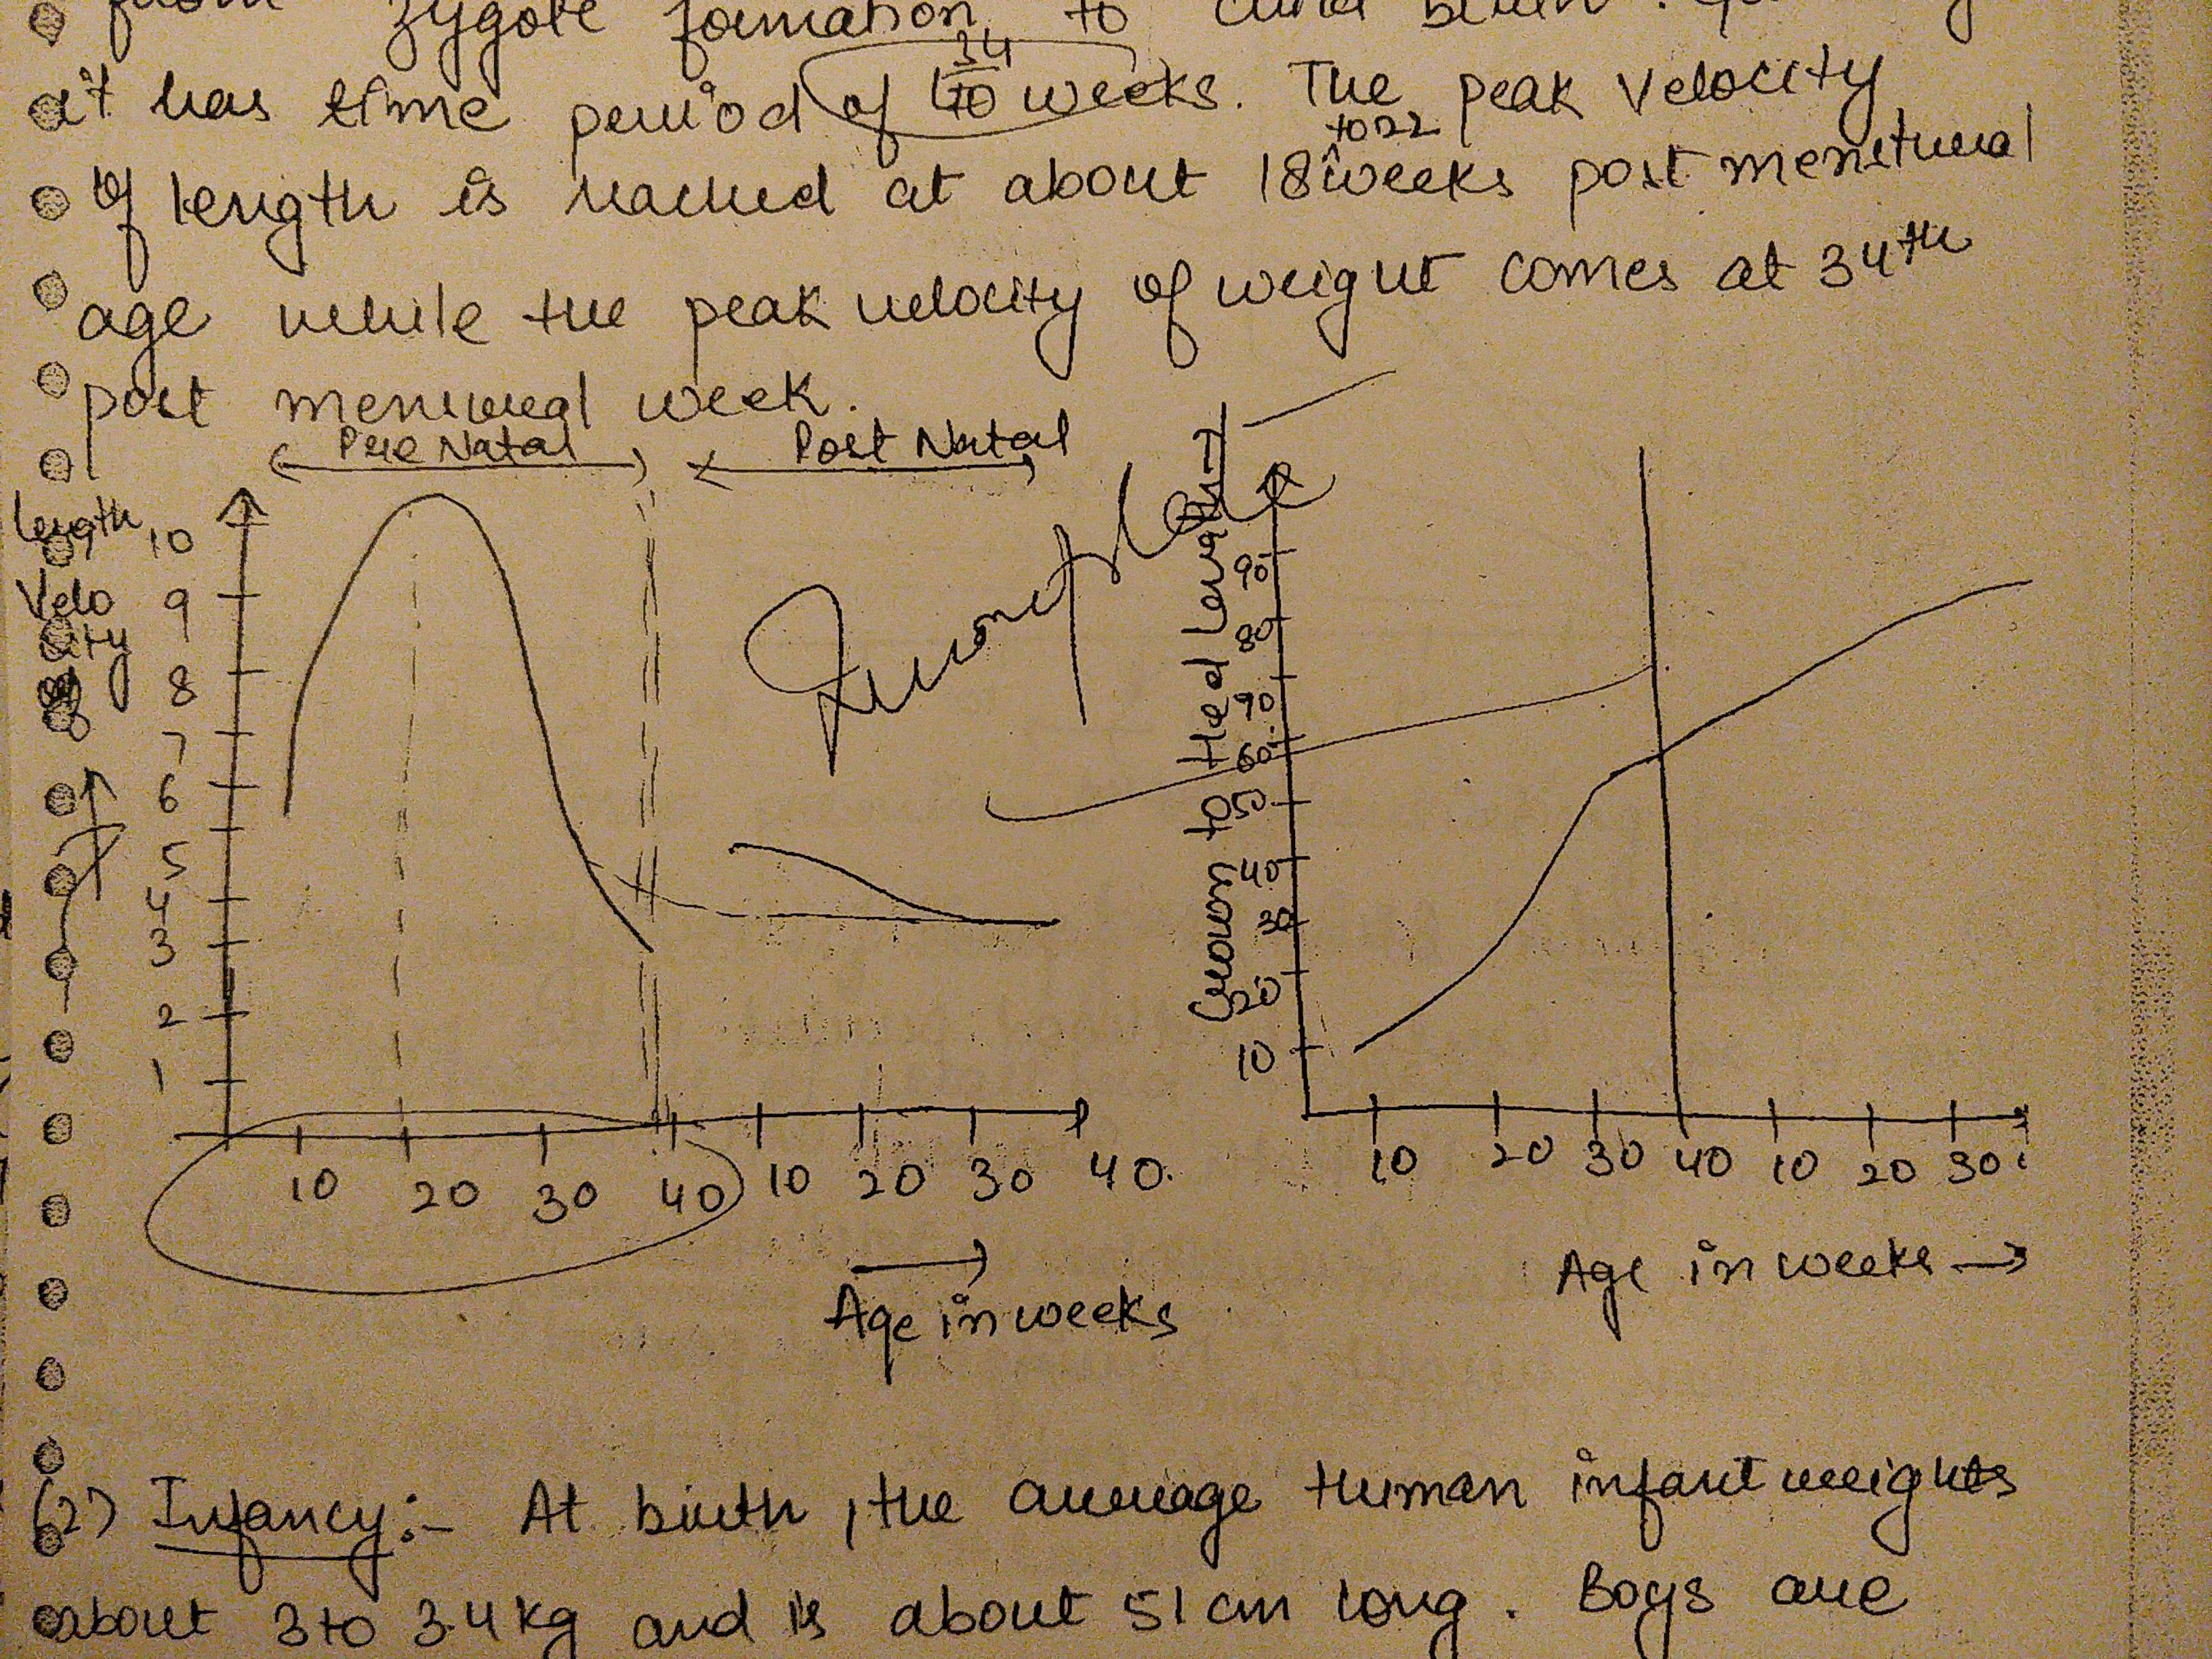 from zygote formation to child birth.
34
it has time period of 40 weeks. The peak velocity
to 22
of length is reached at about 18 weeks post menstrual
age while the peak velocity of weight comes at 34th
post menstrual week.
Pre Natal
Post Natal
length
Velo
city
10
9
8
7
6
5
4
3
2
1
10 20 30 40 10 20 30 40
Age in weeks
Incomplete
Crown to Heel length
90
80
90
60
50
40
30
20
10
10 20 30 40 10 20 30
Age in weeks
(2) Infancy:- At birth, the average Human infant weights
about 3 to 3.4 kg and is about 51 cm long. Boys are